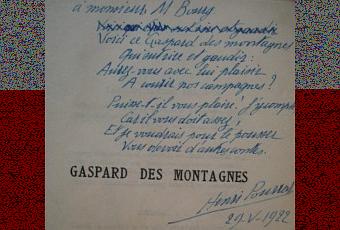 à monsieur M
Voici ce Gaspard des montagnes
Qui entre et gaudit:
Aurez-vous avec lui plaisir
A courir nos campagnes?
Puisse-t-il vous plaire! J'y compte
Car il vous
Et je voudrais pour le pousser
Vous devoir d'autres contes.
GASPARD DES MONTAGNES
Henri Pourrat
29-V-1922